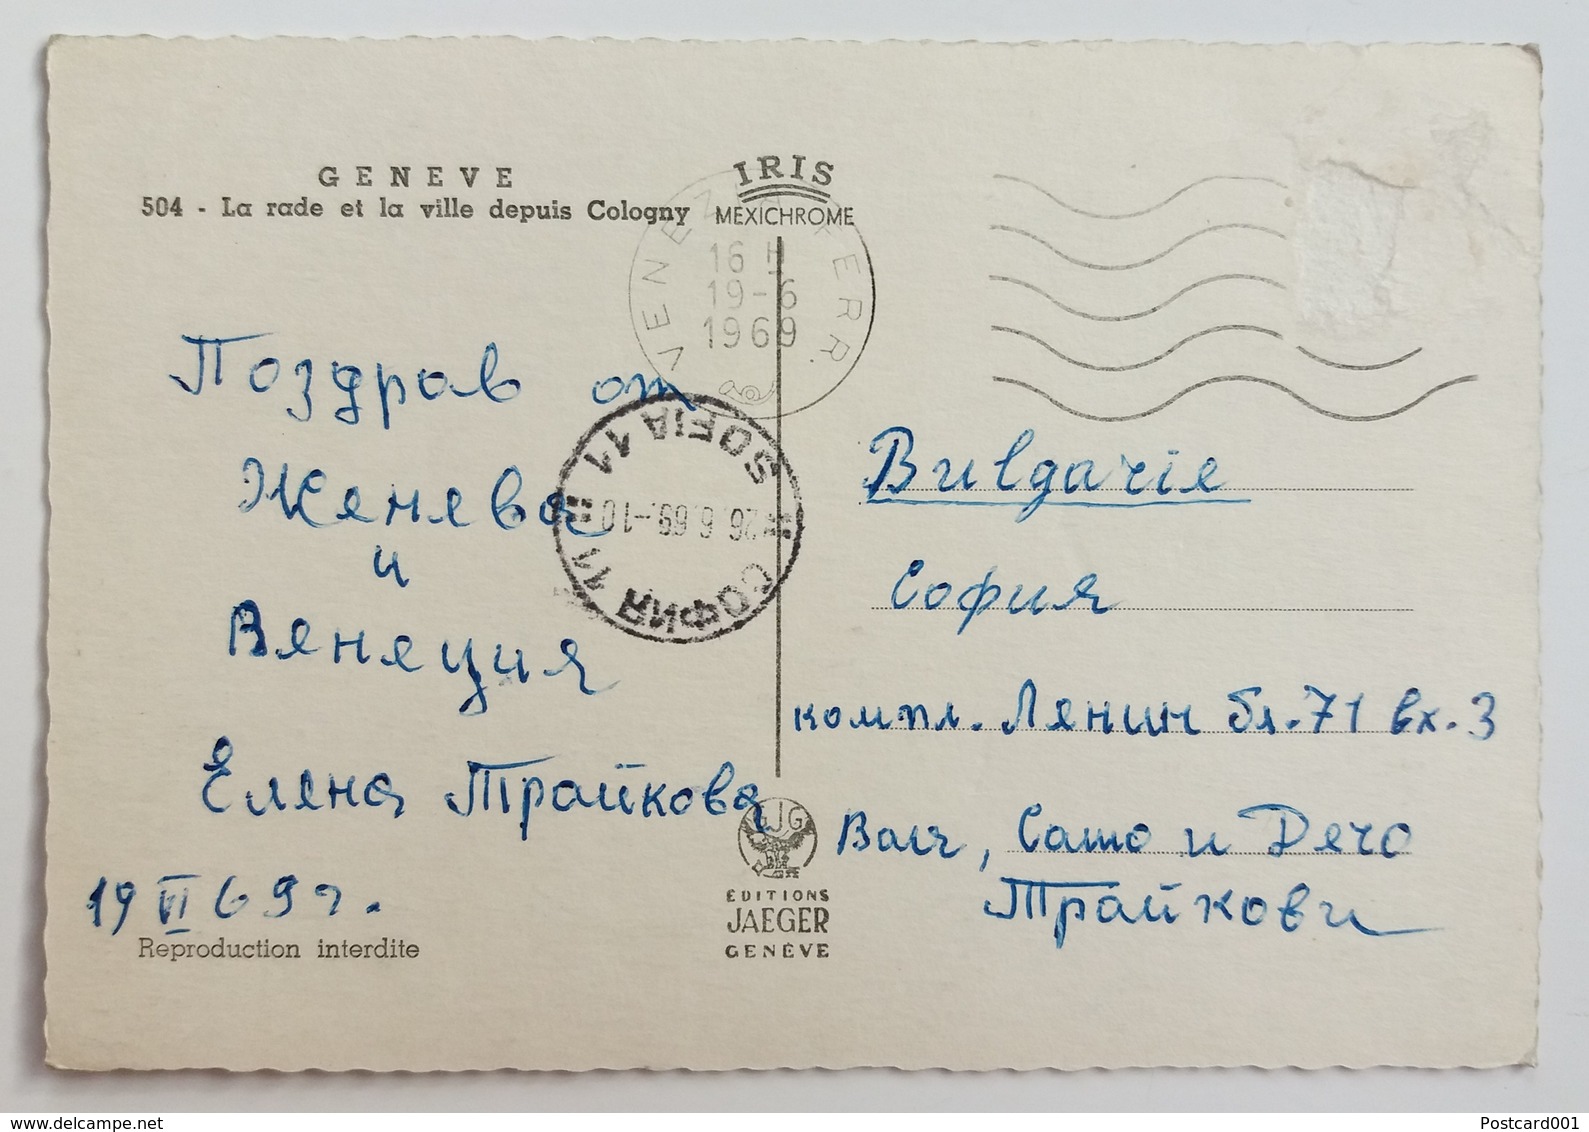 GENEVE
504 - La rade et la ville depuis Cologny
IRIS
MEXICHROME
VENEZIA FERR.
16 H
19-6
1969
Поздрав от
Женева
и
Венеция
Елена Трайкова
19 VI 69 г.
SOFIA 11
26.6.69.-10
СОФИЯ 11
Bulgarie
София
компл. Ленин бл. 71 вх. 3
Валя, Сашо и Дечо
Трайкови
JG
EDITIONS
JAEGER
GENÈVE
Reproduction interdite
www.delcampe.net
Postcard001